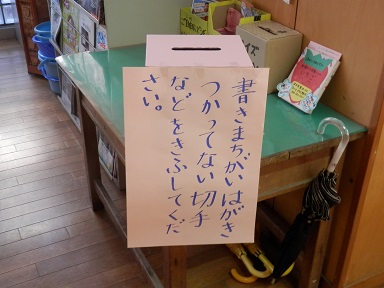 書きまちがいはがき
つかってない切手
などをきふしてくだ
さい。